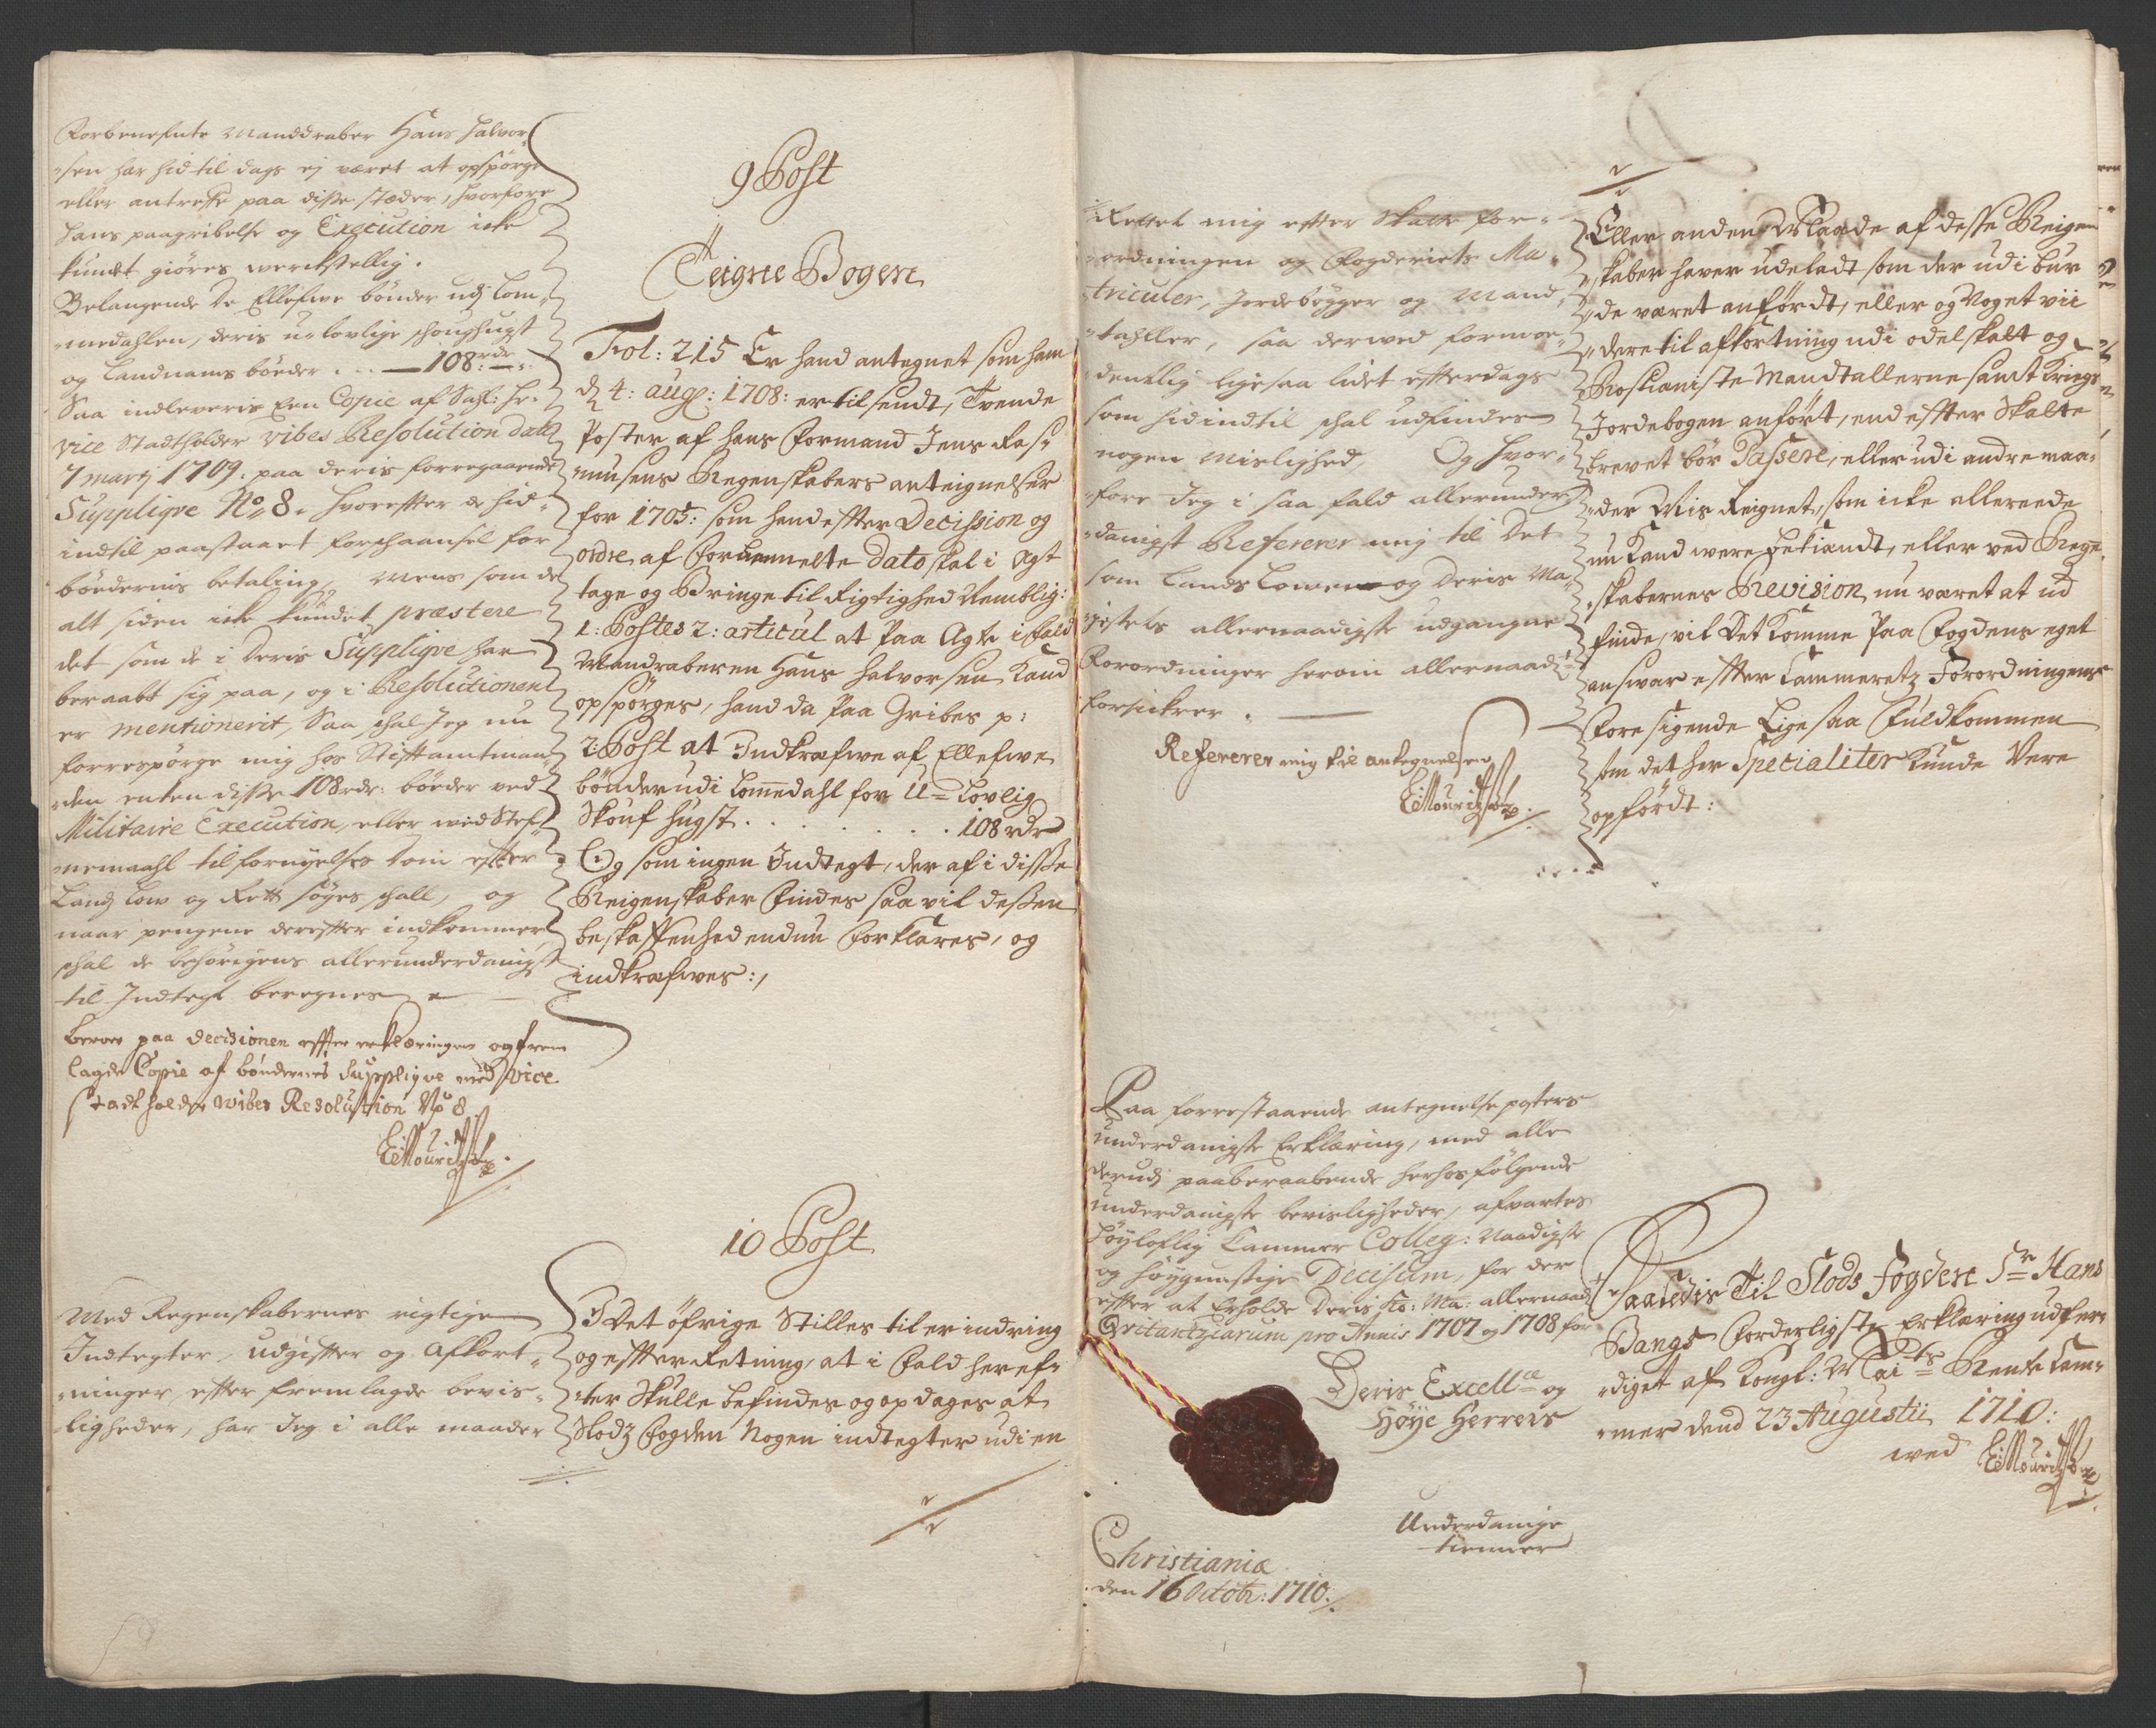 Forbenefnte Manddraber Hans Halvor-
sen har hid til dags ej været at opspørge
eller antreffe paa disse stæder, hvorfore
hans paagribelse og Execution icke
kundet giøres werckstellig.
Belangende de Ellefwe bønder udj Lom-
medahlen, deris u-lovlige schoughugst
og Landnams bøeder . . . — 108: rdr —:
Saa indleveris Een Copie af Sahl: Hr.
Vice Stadtholder Vibes Resolution dat:
7 Marj 1709. paa deris forregaaende
Suppliqve No. 8. hvoreffter de hid-
indtil paastaaet forschaansel for
bøedernis betaling, Mens som de
alt siden icke kundet præstere
det som de i deris Suppliqve har
beraabt sig paa, og i Resolutionen
er mentionerit, Saa schal Jeg nu
forrespørge mig hos Stifftamtman-
den enten disse 108 rdr: bøeder ved
Militaire Execution, eller med Stef-
nemaahl til fornyelses Dom effter
Landz Low og Rett søges schall, og
naar pengene dereffter indkommer
schal de behørigens allerunderdanigst
til Indtegt beregnes
Beroer paa decisionen effter erklæringen og frem
lagde Copie af bøndernes Suppliqve med Vice
Stadtholder Wibes Resolution No 8
EMouritzøn
9 Post
Teigne Bogen
Fol: 215 Er hand antegnet som ham
d 4: aug: 1708: er tilsendt, Tvende
Poster af hans Formand Jens Ras-
musens Regenskabers anteignelser
for 1705: som hand effter Decission og
ordre af Forbemelte Dato skal i Agt
tage og Bringe til Rigtighed Nemblig:
1: Postes 2: articul at Paa Agte ifald
Mandraberen Hans Halvorsen Kand
opspørges, hand da Paa Gribes p:
2: Post at Indkræfwe af Ellefwe
bønder udi Lommedahl for U-Lovlig
Skouf hugst . . . . . . . 108 rdr
Og som ingen Indtegt, der af i disse
Reigenskaber Findes saa vil dessen
beskaffenhed endnu Forklares, og
indkræfwes:,
10 Post
Med Regenskabernes rigtige
Indtegter, udgiffter og Afkort-
ninger, effter fremlagde bevis-
ligheder, har Jeg i alle maader
I Det øfrige Stilles til erindring
og effter Retning, at i Fald heref-
ter Skulle befindes og opdages at
Slodz Fogden Nogen indtegter udi en
Rettet mig effter Skatte for-
ordningen og Fogderiets Ma-
triculer, Jordebøgger og Mand-
tahller, saa derved formoe-
dentlig ligesaa lidet effterdags
som hid indtil schal udfindes
nogen Mislighed, Og hvor-
fore Jeg i saa fald allerunder-
danigst Refererer mig til Det
som Lands Lowen og Deris Ma-
jestets allernaadigste udgangne
Forordninger herom allernaad:
forsickrer.
Refererer mig til antegnelsen
EMouritzøn
Eller anden Maade af desse Reigen
skaber haver udeladt som der udi bur
de været anført, eller og Noget vii
dere til afkortning udi odelskatt og
Roskieniste Mandtallerne samt Krigs
Jordebogen anført, end effter Skatte
brevet bør Passere, eller udi andre maa-
der Mis Reignet, som icke allereede
nu Kand were bekiendt, eller ved Rege-
skabernes Revision nu været at ud
finde, vil Det Komme Paa Fogdens eget
answar effter Cammeretz Forordningens
Fore sigende Lige saa Fuldkommen
som det her Specialiter Kunde Vere
opført:
Paa forrestaaende antegnelse posters
underdanigste Erklæring, med alle
derudj paaberaabende herhos følgende
underdanigste bevisligheder, afvartes
Høyloflig Cammer Colleg: Naadigste
og høygunstige Decisum, for der
effter at Erholde Deris Ko: Ma: allernaad:
Qvitantziarum pro Annis 1707 og 1708 for
Deris Excellce og
Høye Herrers
Underdanige
tienner
Christiania
den 16 Octobr: 1710.
Saaledis Til Slods Fogden Sr Hans
Bangs Forderligste Erklæring udfer-
diget af Kongl: Maits Rente Cam-
mer dend 23 Augustii 1710:
ved EMouritzøn